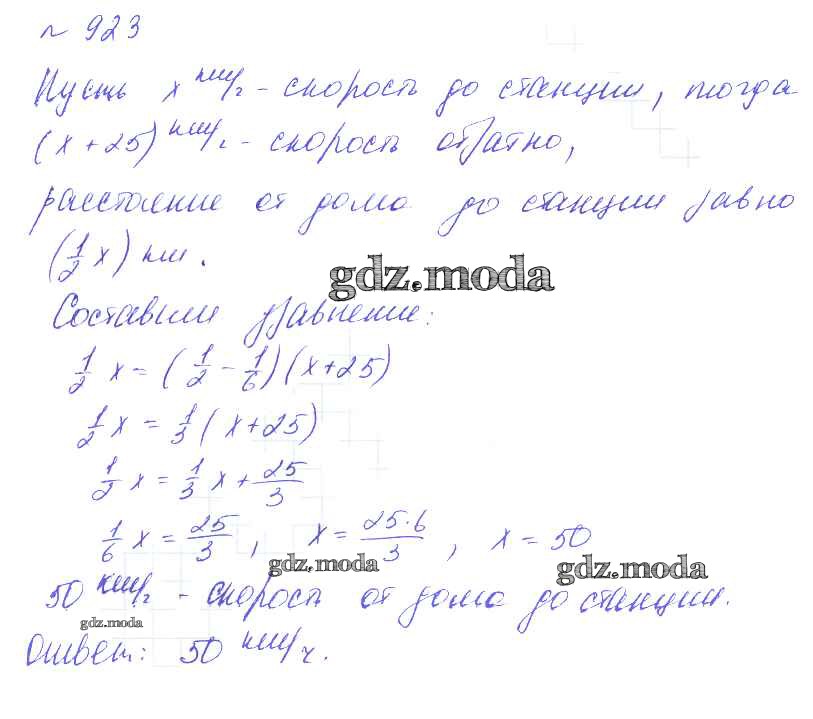 № 923
Пусть x км/ч - скорость до станции, тогда
(x + 25) км/ч - скорость обратно,
расстояние от дома до станции равно
(1/2 x) км.
gdz.moda
Составим уравнение:
1/2 x = (1/2 - 1/6)(x+25)
1/2 x = 1/3 (x+25)
1/2 x = 1/3 x + 25/3
1/6 x = 25/3 , x = 25·6/3 , x = 50
gdz.moda
gdz.moda
50 км/ч - скорость от дома до станции.
gdz.moda
Ответ: 50 км/ч.